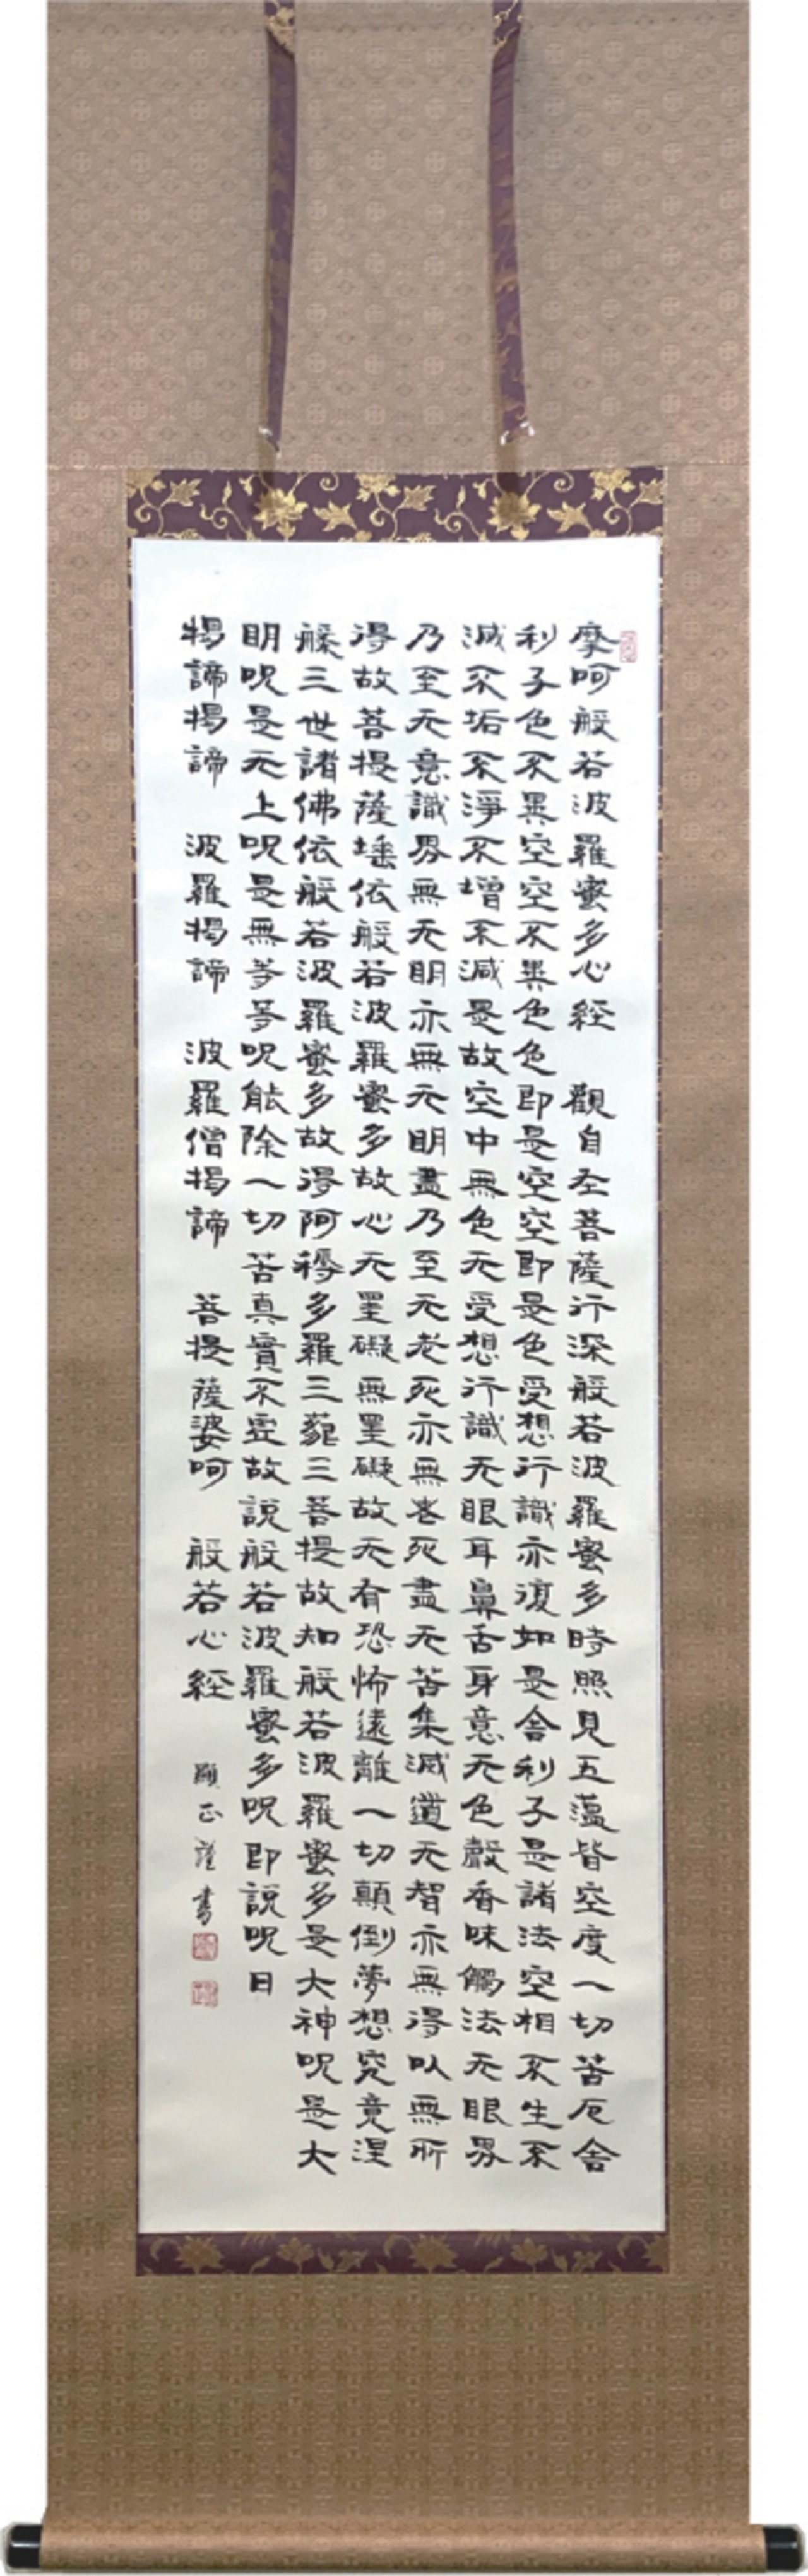 摩呵般若波羅蜜多心經 觀自在菩薩行深般若波羅蜜多時照見五蘊皆空度一切苦厄舍
利子色不異空空不異色色即是空空即是色受想行識亦復如是舍利子是諸法空相不生不
滅不垢不淨不增不減是故空中無色无受想行識无眼耳鼻舌身意无色聲香味觸法无眼界
乃至无意識界無无明亦無无明盡乃至无老死亦無老死盡无苦集滅道无智亦無得以無所
得故菩提薩埵依般若波羅蜜多故心无罣礙無罣礙故无有恐怖遠離一切顛倒夢想究竟涅
槃三世諸佛依般若波羅蜜多故得阿耨多羅三藐三菩提故知般若波羅蜜多是大神呪是大
明呪是无上呪是無等等呪能除一切苦真實不虛故說般若波羅蜜多呪即說呪曰
揭諦揭諦 波羅揭諦 波羅僧揭諦 菩提薩婆呵 般若心經
顯正謹書